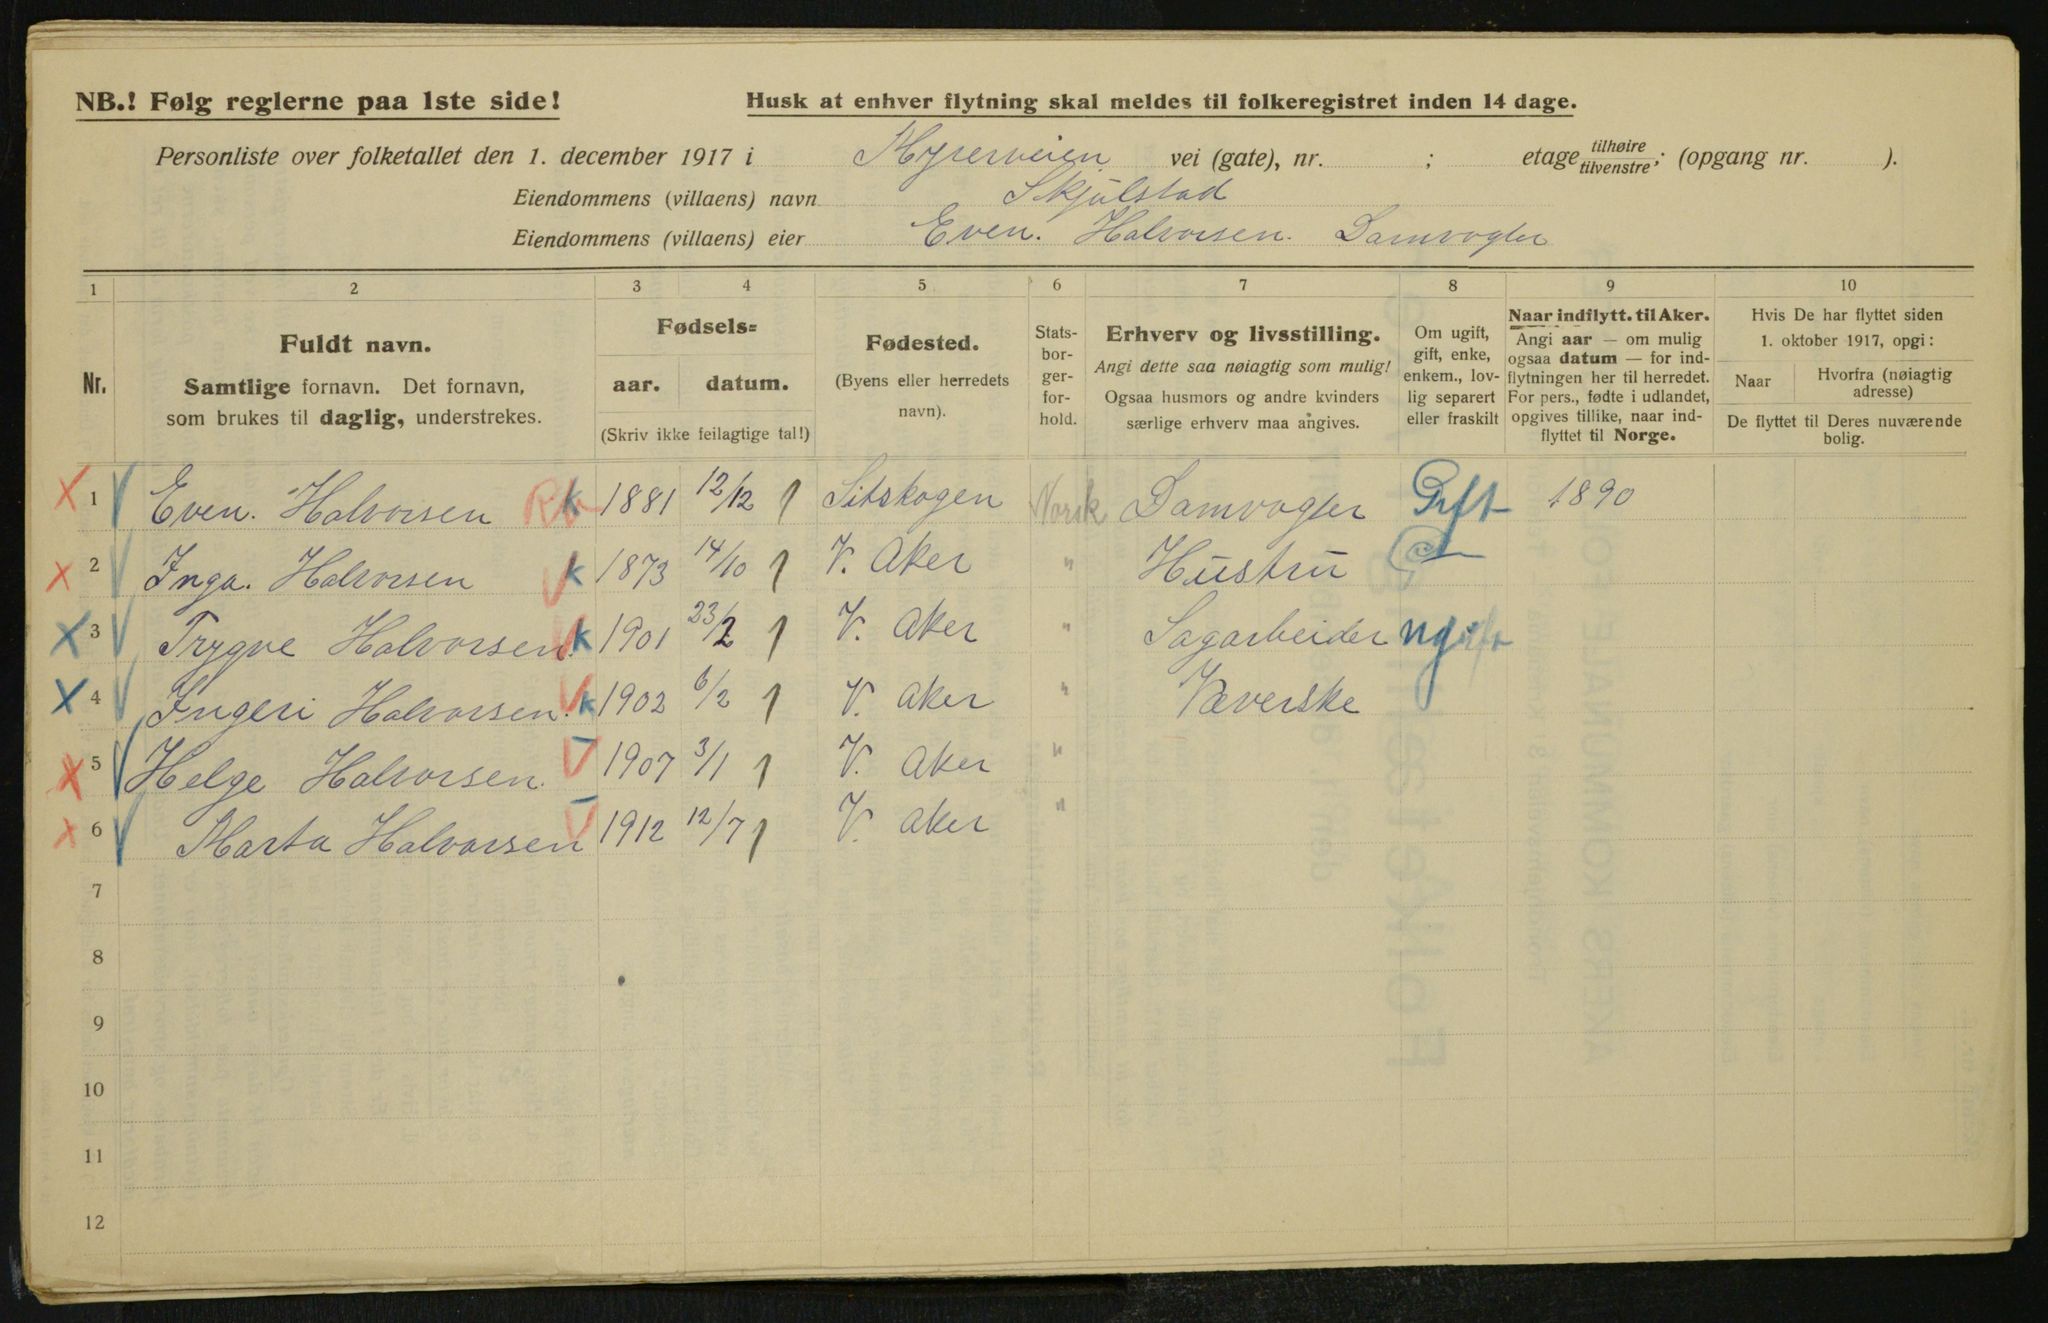 NB.! Følg reglerne paa 1ste side!
Husk at enhver flytning skal meldes til folkeregistret inden 14 dage.
Personliste over folketallet den 1. december 1917 i Kyrerveien vei (gate), nr. ; etage tilhøire tilvenstre; (opgang nr. ).
Eiendommens (villaens) navn Skjulstad
Eiendommens (villaens) eier Even. Halvorsen. Damvogter
1 2 3 4 5 6 7 8 9 10
Nr.
Fuldt navn.
Samtlige fornavn. Det fornavn,
som brukes til daglig, understrekes.
Fødsels=
aar. datum.
(Skriv ikke feilagtige tal!)
Fødested.
(Byens eller herredets
navn).
Stats-
bor-
ger-
for-
hold.
Erhverv og livsstilling.
Angi dette saa nøiagtig som mulig!
Ogsaa husmors og andre kvinders
særlige erhverv maa angives.
Om ugift,
gift, enke,
enkem., lov-
lig separert
eller fraskilt
Naar indflytt. til Aker.
Angi aar — om mulig
ogsaa datum — for ind-
flytningen her til herredet.
For pers., fødte i udlandet,
opgives tillike, naar ind-
flyttet til Norge.
Hvis De har flyttet siden
1. oktober 1917, opgi:
Naar
Hvorfra (nøiagtig
adresse)
De flyttet til Deres nuværende
bolig.
X 1 Even. Halvorsen k 1881 12/12 Sitskogen Norsk Damvogter Gift 1890
X 2 Inga. Halvorsen k 1873 14/10 V. Aker " Hustru
X 3 Trygve Halvorsen k 1901 23/2 V. Aker " Sagarbeider ugift
X 4 Ingeri Halvorsen. k 1902 6/2 V. Aker " Væverske
X 5 Helge Halvorsen. 1907 3/1 V. Aker "
X 6 Marta Halvorsen 1912 12/7 V. Aker "
7
8
9
10
11
12